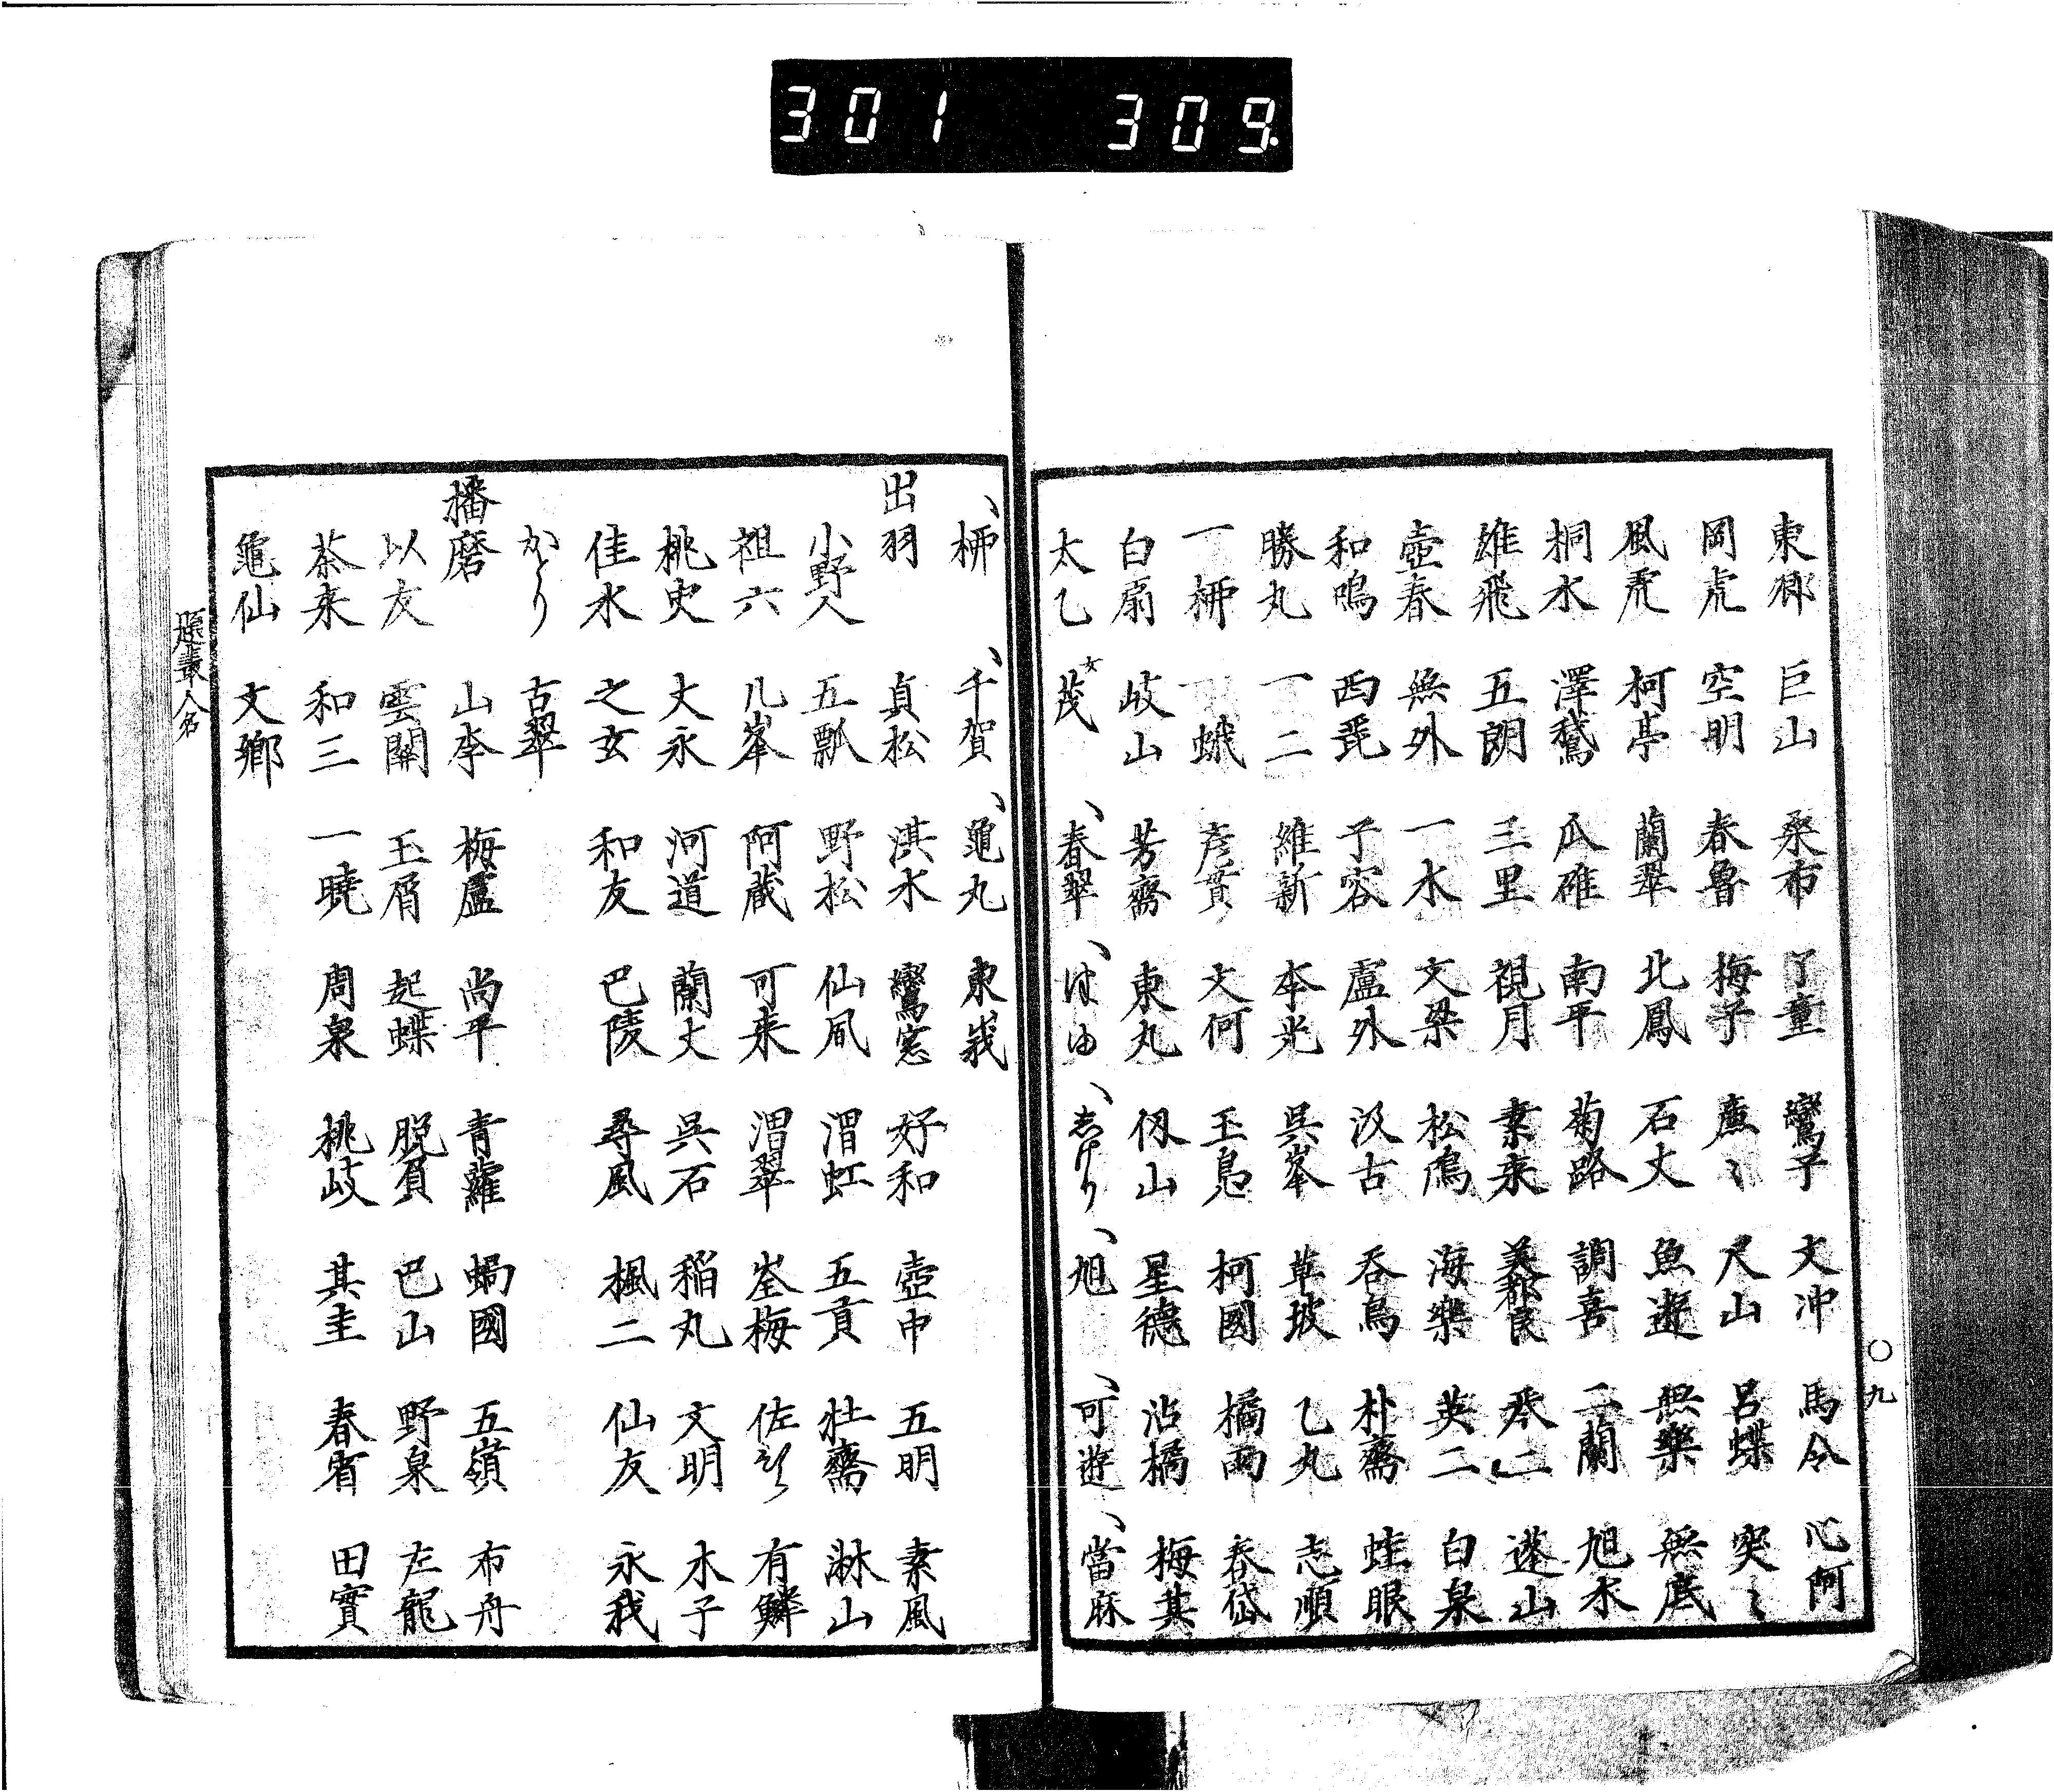 301 309
東郷 巨山 桒布 了童 鸞子 文冲 馬令 心阿
岡虎 空明 春魯 梅子 薫〻 尺山 呂蝶 突〻
風虎 柯亭 蘭翠 北鳳 石丈 魚遊 無樂 無底
桐水 澤鵞 瓜碓 南平 菊路 調喜 二蘭 旭水
雄飛 五朗 三里 視月 素来 美都良 二 蓬山
壺春 無外 一水 文梁 松鳫 海樂 英二 白泉
和鳴 西甍 子容 盧外 汲古 呑鳥 朴齋 蛙眼
勝丸 一二 維新 本光 呉峯 草坡 乙丸 志順
一栁 一蛾 彦貫 文何 玉鳬 柯國 橘雨 春岱
白扇 岐山 芳齋 東丸 仭山 星德 沾橘 梅其
太乙 女茂 、春翠 、はゆ 、志げり 、旭 、可遊 、當麻
〇九
、栁 、千賀 、龜丸 東峩
出羽 貞松 淇水 鸞窓 好和 壺中 五明 素風
小野人 五瓢 野松 仙風 渭虹 五貢 壮齋 淋山
祖六 几峯 阿蔵 可来 渭翠 峑梅 佐 有鱗
桃史 丈永 河道 蘭丈 呉石 稲丸 文明 木子
佳水 之玄 和友 巴陵 尋風 楓二 仙友 永我
かとり 古翠
播磨 山李 梅盧 尚平 青蘿 蝸國 五嶺 布舟
以友 雲關 玉屑 起蝶 脱負 巴山 野泉 左龍
茶来 和三 一曉 周泉 桃岐 其圭 春宵 田實
龜仙 文郷
題叢人名